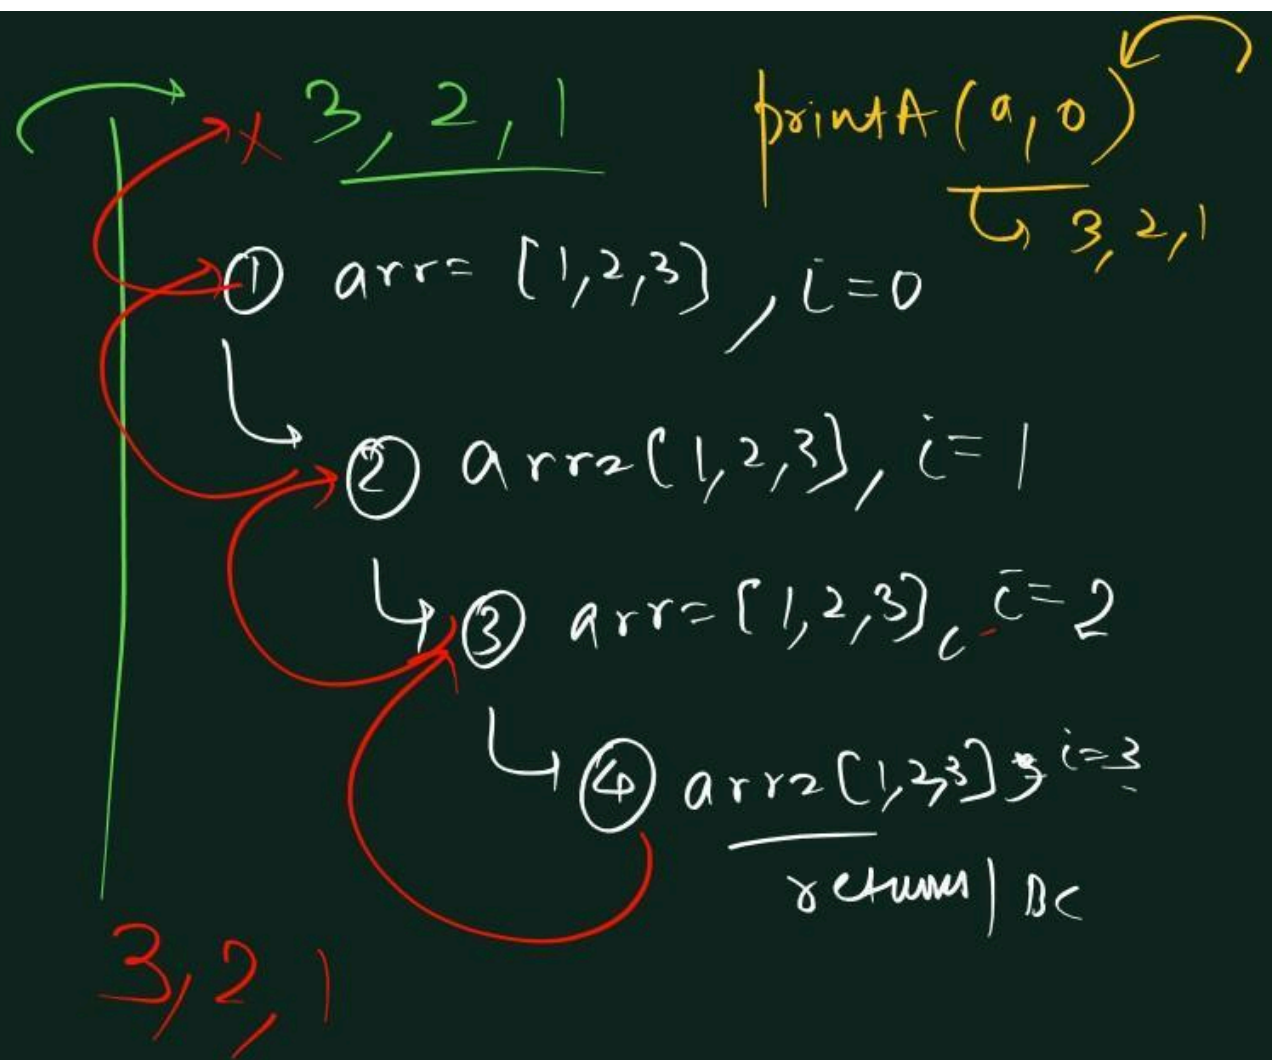 x 3, 2, 1
printA(a, 0)
↳ 3, 2, 1
① arr= [1,2,3], i=0
② arr=[1,2,3], i=1
③ arr=[1,2,3], i=2
④ arr=[1,2,3], i=3
returns | BC
3, 2, 1